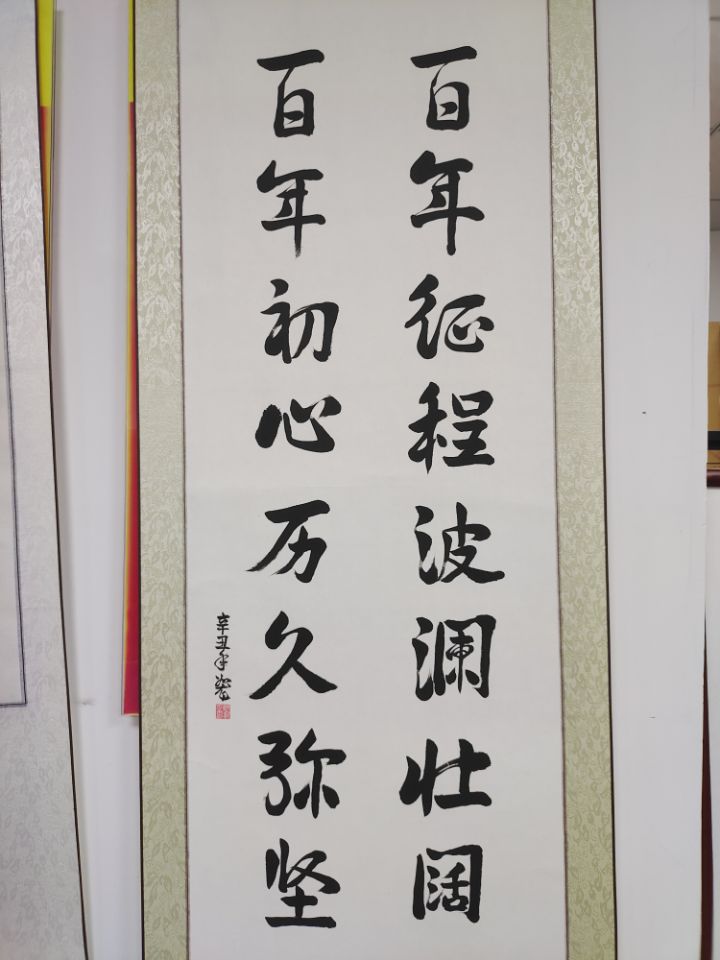 百年征程波澜壮阔
百年初心历久弥坚
辛丑年